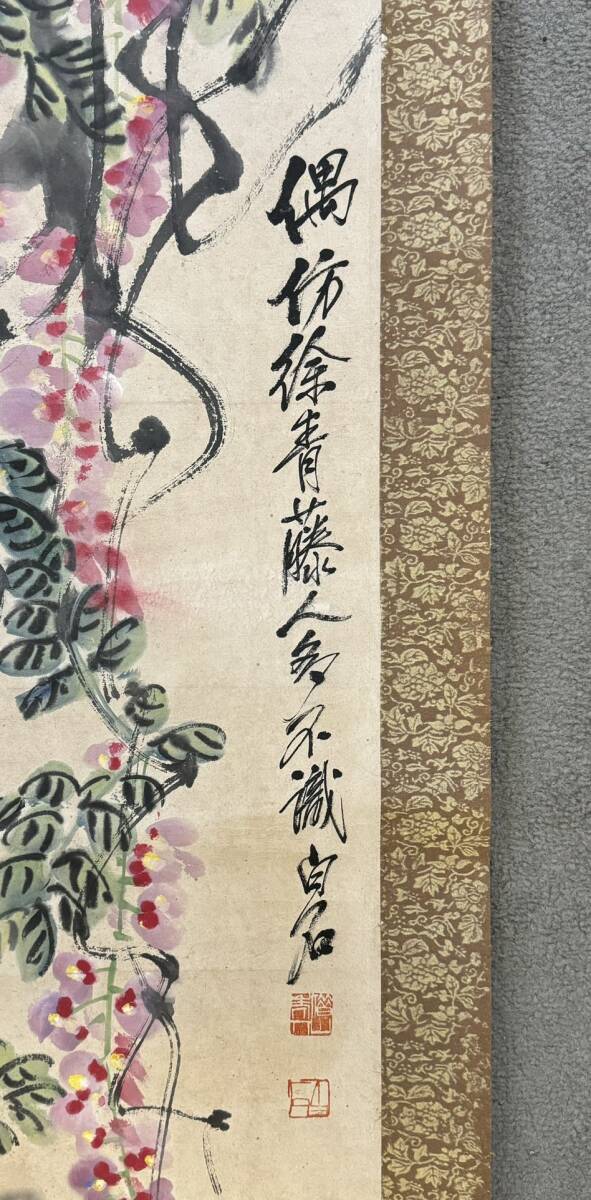 偶仿徐青藤人多不識白石